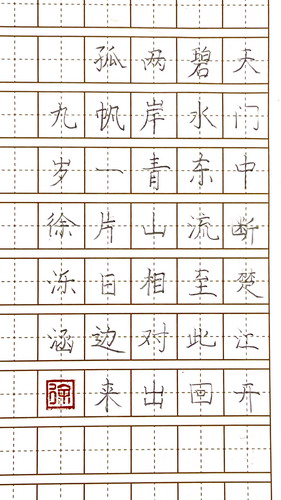 天门中断楚江开
碧水东流至此回
两岸青山相对出
孤帆一片日边来
九岁徐泺涵